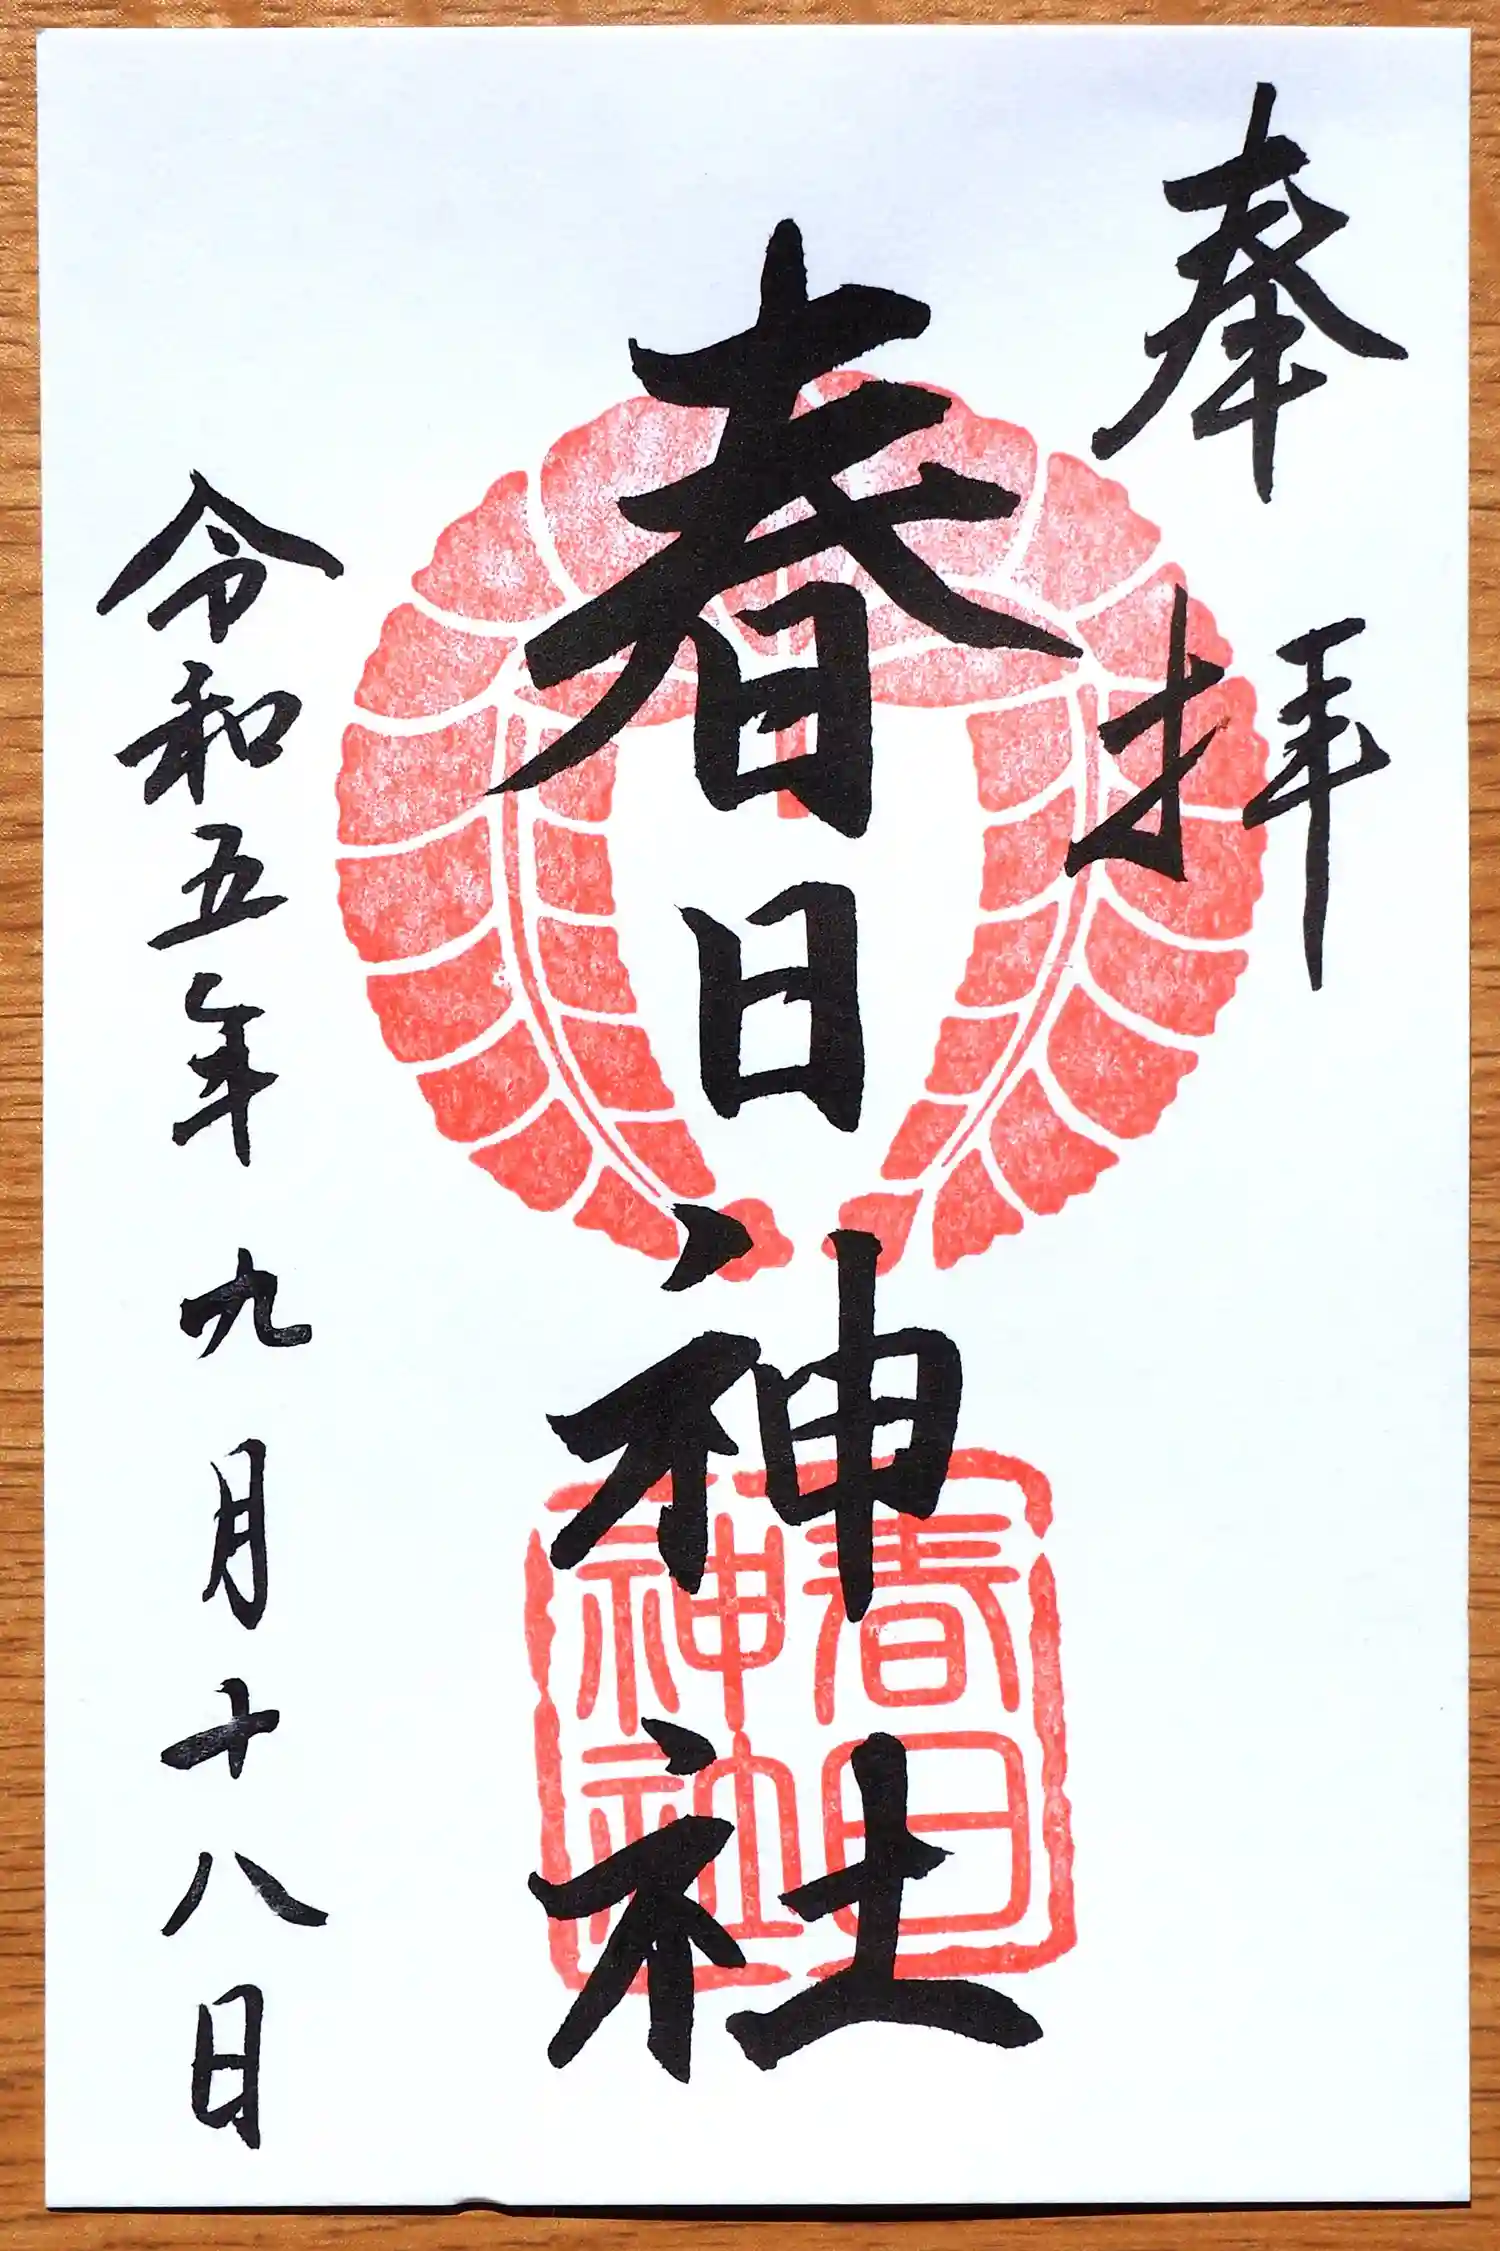 奉拝
春日神社
春日
神社
令和五年九月十八日